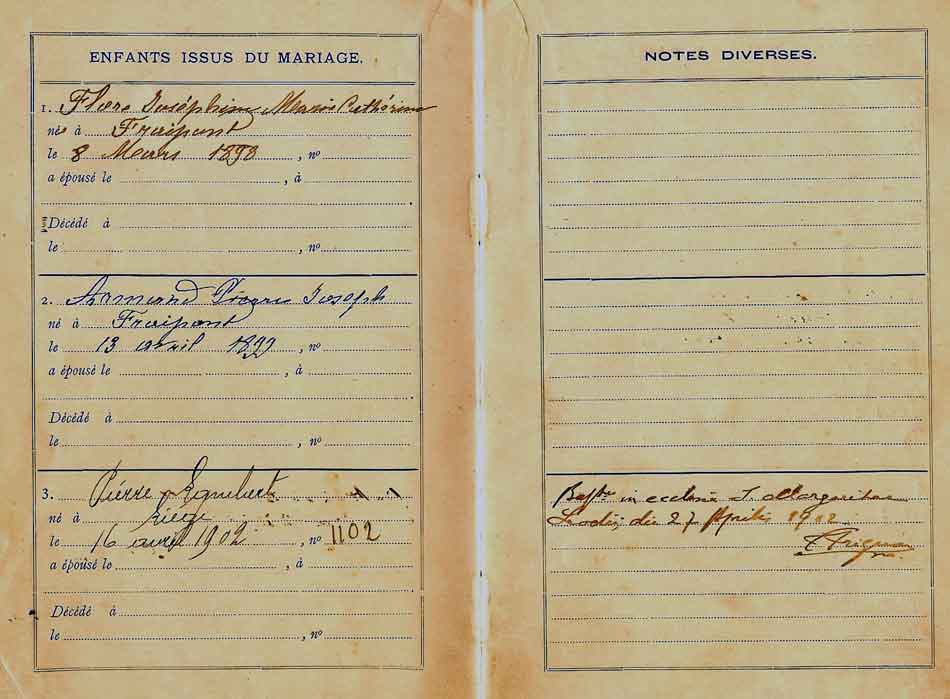 ENFANTS ISSUS DU MARIAGE.
1. Flore Joséphine Marie Cathérine
née à Fraipont
le 8 Mars 1893, nº
a épousé le , à
Décédé à
le , nº
2. Armand Joseph
né à Fraipont
le 13 avril 1897, nº
a épousé le , à
Décédé à
le , nº
3. Pierre Lambert
né à Liége
le 16 avril 1902, nº 1102
a épousé le , à
Décédé à
le , nº
NOTES DIVERSES.
in ecclesia S. Margaritae
Leodii die 27 Aprilis 1902